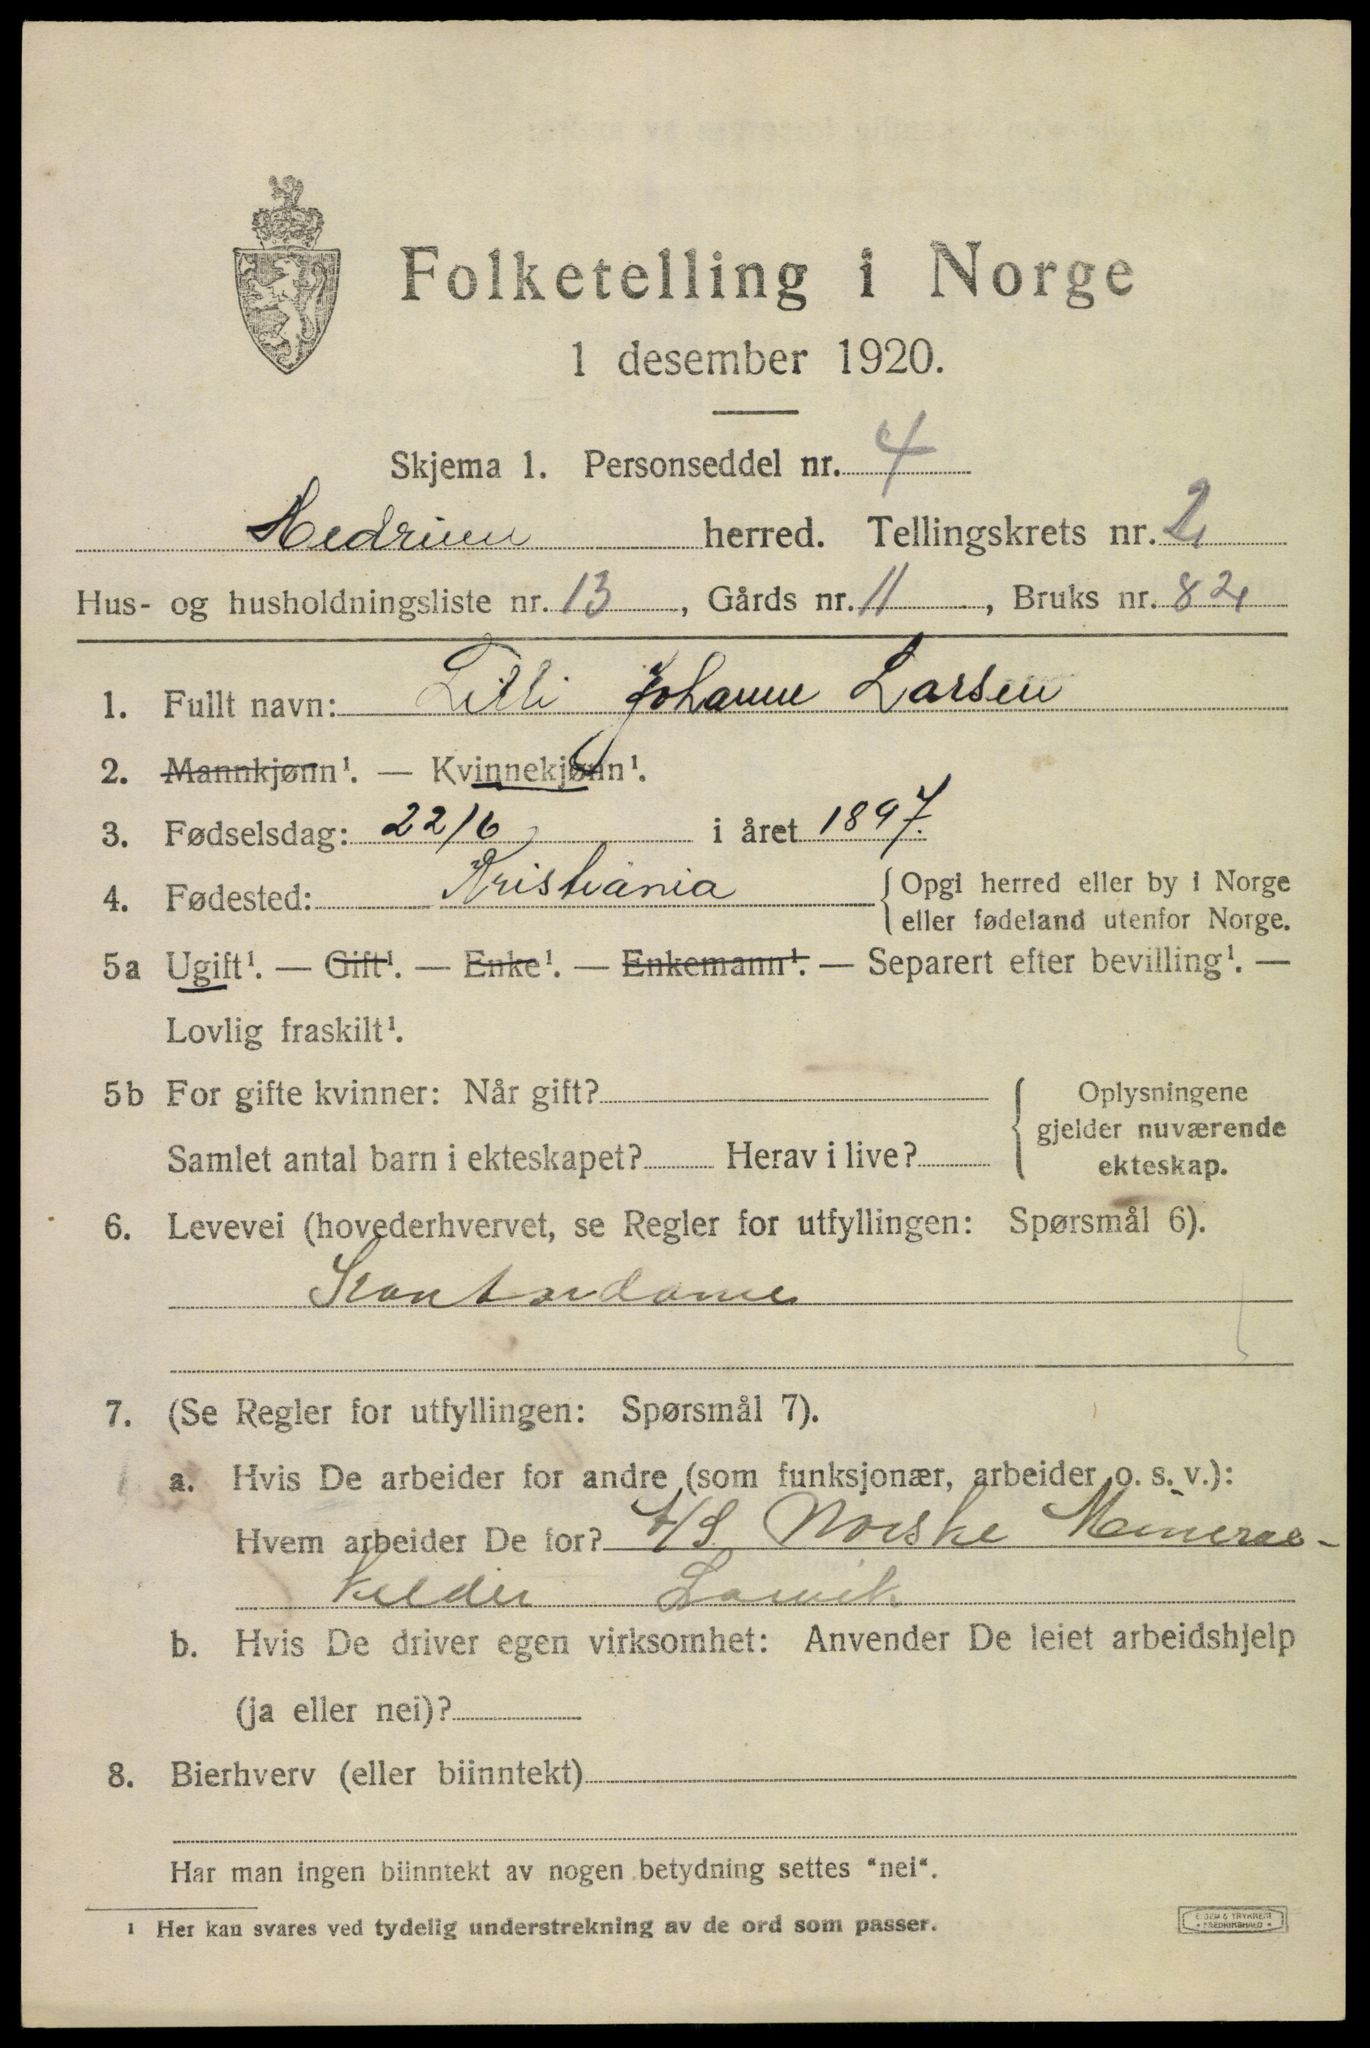 Folketelling i Norge
1 desember 1920.
Skjema 1. Personseddel nr. 4
Hedrum herred. Tellingskrets nr. 2
Hus- og husholdningsliste nr. 13, Gårds nr. 11, Bruks nr. 82
1. Fullt navn: Lilli Johanne Larsen
2. Mannkjønn¹. — Kvinnekjønn¹.
3. Fødselsdag: 22/6 i året 1897.
4. Fødested: Kristiania { Opgi herred eller by i Norge
eller fødeland utenfor Norge.
5a Ugift¹. — Gift¹. — Enke¹. — Enkemann¹. — Separert efter bevilling¹. —
Lovlig fraskilt¹.
5b For gifte kvinner: Når gift? { Oplysningene
gjelder nuværende
Samlet antal barn i ekteskapet? Herav i live?
ekteskap.
6. Levevei (hovederhvervet, se Regler for utfyllingen: Spørsmål 6).
Kontordame
7. (Se Regler for utfyllingen: Spørsmål 7).
a. Hvis De arbeider for andre (som funksjonær, arbeider o. s. v.):
Hvem arbeider De for? A/S Norske Mineral-
kilder Larvik
b. Hvis De driver egen virksomhet: Anvender De leiet arbeidshjelp
(ja eller nei)?
8. Bierhverv (eller biinntekt)
Har man ingen biinntekt av nogen betydning settes "nei".
¹ Her kan svares ved tydelig understrekning av de ord som passer.
FREDRIKSHALD